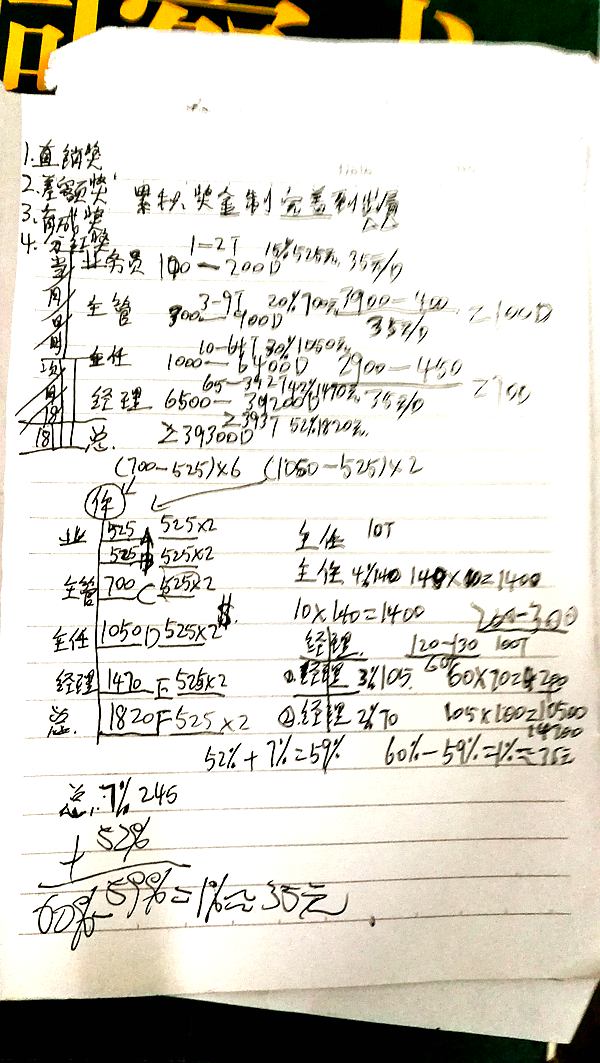 1.直销奖
2.差额奖 累积奖金制完善利益
3.育成奖
4.分红奖
业务员 1=2T 15% 525元 35元/D
100—200D
主管 3-9T 20% 700元 2900-400 ≥100D
300—900D 35元/D
主任 10-64T 30% 1050元 2900-450
1000—6400D
经理 65-392T 42% 1470元 35元/D
6500—39200D
总 ≥39300D ≥393T 52% 1820元
(700-525)×6 (1050-525)×2
你
业 525 A 525×2 主任 10T
525 B 525×2
主管 700 C 525×2 主任 4% 140 140×10=1400
主任 1050 D 525×2 10×140=1400 200-300
经理 120-130 100T
60%
经理 1470 E 525×2 ①经理 3% 105 60×70=4200
总 1820 F 525×2 ②经理 2% 70 105×100=10500
14700
52%+7%=59% 60%-59%=1%=35元
总 7% 245
+ 52%
60%-59%=1%=35元